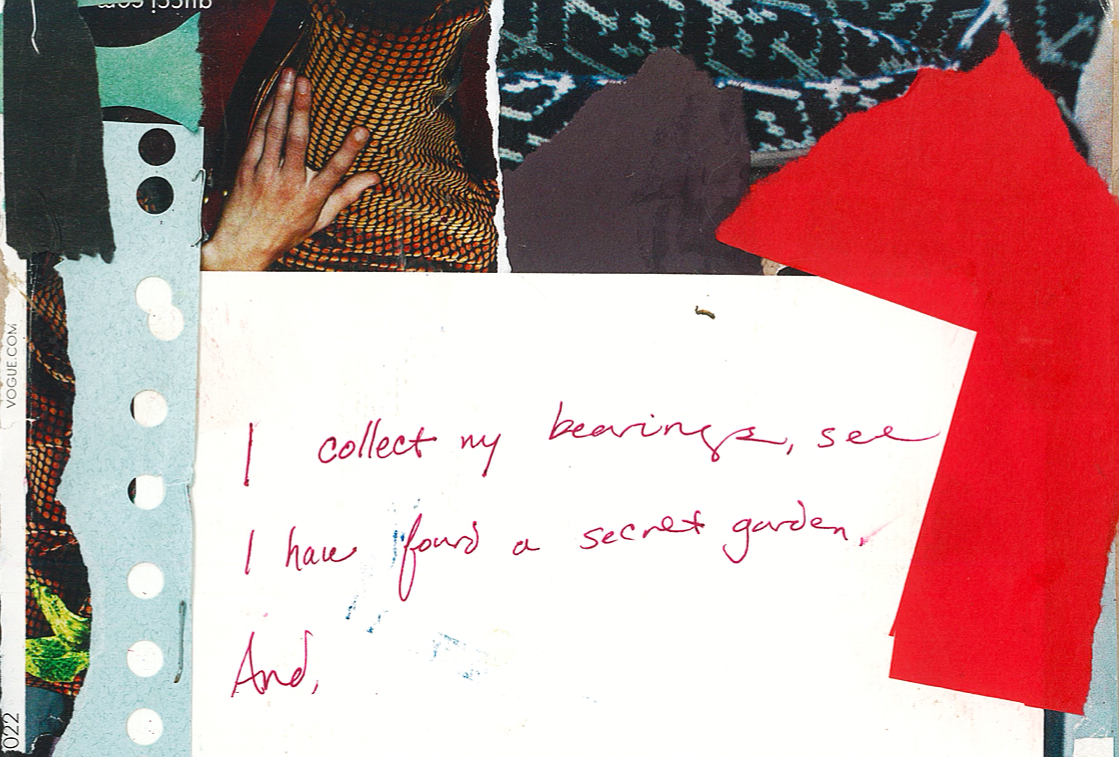 gucci.com
VOGUE.COM
I collect my bearings, see
I have found a secret garden.
And,
022